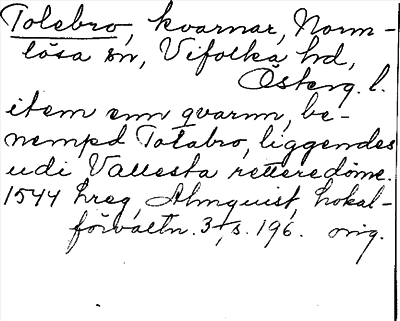 Tolebro, kvarnar, Norm-
lösa sn, Vifolka hd,
Österg. l.
item emn qvarnn, be-
nempd Totabro, liggendes
udi Vallesta retteredöme.
1544 hreg, Almquist, Lokal-
förvaltn. 3, s. 196. orig.